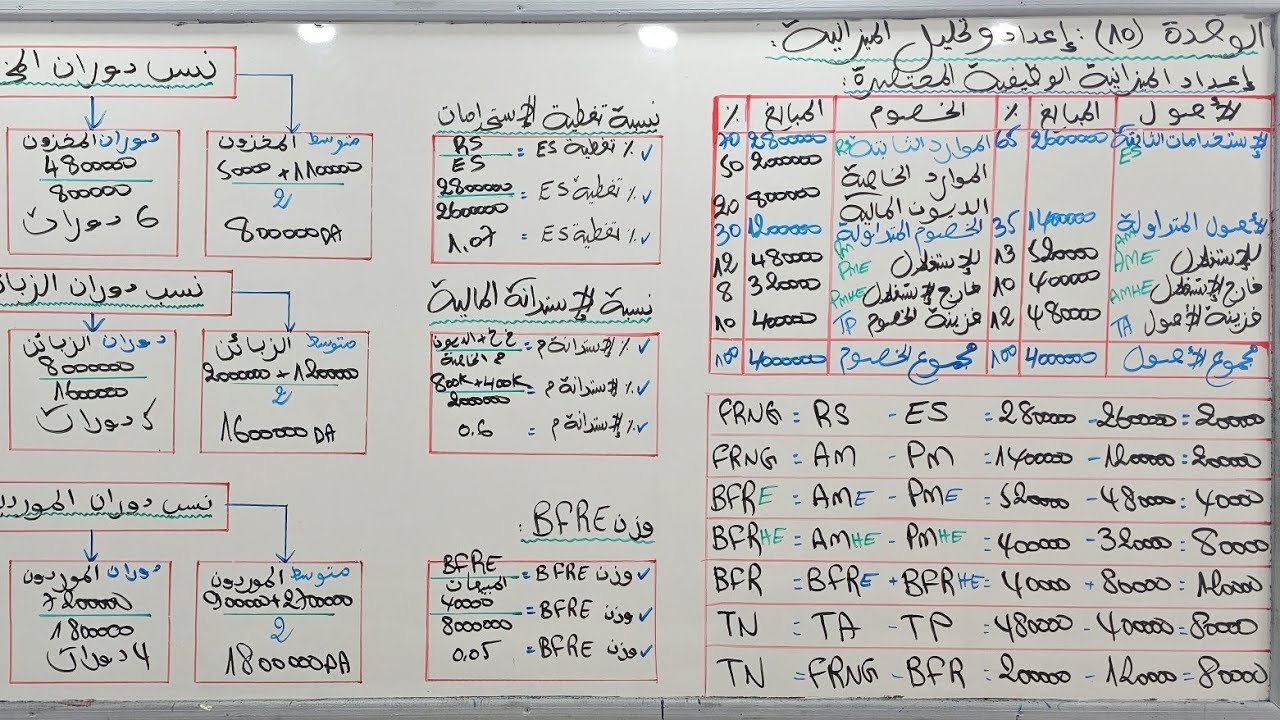 الوحدة (10): إعداد وتحليل الميزانية:
إعداد الميزانية الوظيفية المختصرة:
الأصول المبالغ % الخصوم المبالغ %
الإستخدامات الثابتة ES 2600000 65 الموارد الثابتة RS 2800000 70
الموارد الخاصة 2000000 50
الديون المالية 800000 20
الأصول المتداولة AM 1400000 35 الخصوم المتداولة PM 1200000 30
للإستغلال AME 520000 13 للإستغلال PME 480000 12
خارج الإستغلال AMHE 400000 10 خارج الإستغلال PMHE 320000 8
خزينة الأصول TA 480000 12 خزينة الخصوم TP 400000 10
مجموع الأصول 4000000 100 مجموع الخصوم 4000000 100
FRNG = RS - ES = 2800000 - 2600000 = 200000
FRNG = AM - PM = 1400000 - 1200000 = 200000
BFRE = AME - PME = 520000 - 480000 = 40000
BFRHE = AMHE - PMHE = 400000 - 320000 = 80000
BFR = BFRE + BFRHE = 40000 + 80000 = 120000
TN = TA - TP = 480000 - 400000 = 80000
TN = FRNG - BFR = 200000 - 120000 = 80000
نسبة تغطية الإستخدامات
✓ % تغطية ES = RS / ES
✓ % تغطية ES = 2800000 / 2600000
✓ % تغطية ES = 1.07
نسبة الإستدانة المالية
✓ % الإستدانة م = خ خ + الديون / م الخاصة
✓ % الإستدانة م = 800K + 400K / 2000000
✓ % الإستدانة م = 0.6
وزن BFRE:
✓ وزن BFRE = BFRE / المبيعات
✓ وزن BFRE = 40000 / 8000000
✓ وزن BFRE = 0,05
نسب دوران المخ
متوسط المخزون
500000 + 1100000
2
800000 DA
دوران المخزون
4800000
800000
6 دورات
نسب دوران الزبائ
متوسط الزبائن
2000000 + 1200000
2
1600000 DA
دوران الزبائن
8000000
1600000
5 دورات
نسب دوران المورد
متوسط الموردون
900000 + 2700000
2
1800000 DA
دوران الموردون
7200000
1800000
4 دورات